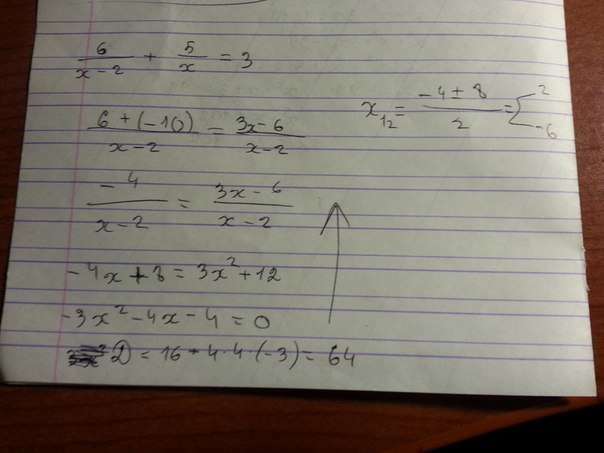 6/(x-2) + 5/x = 3
(6+(-10))/(x-2) = (3x-6)/(x-2)
-4/(x-2) = (3x-6)/(x-2)
-4x+8 = 3x²+12
-3x²-4x-4=0
D = 16-4·4·(-3) = 64
x₁₂ = (-4±8)/2 = 2
-6